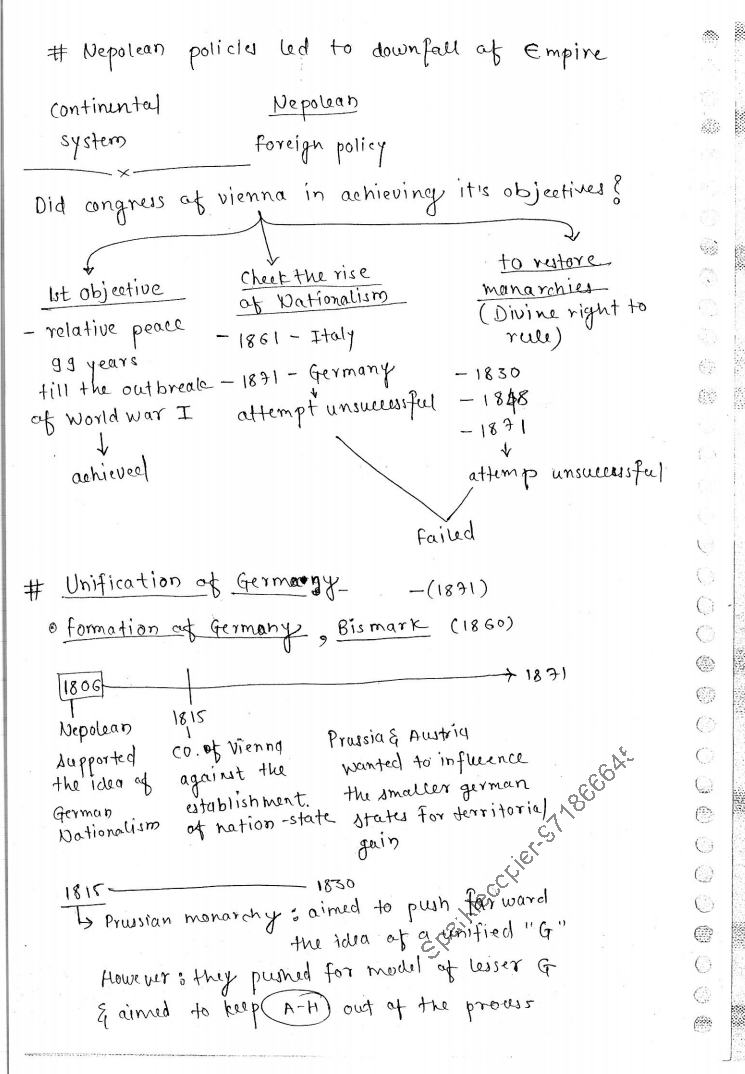 # Nepolean policies led to downfall of Empire
Continental system
Nepolean
foreign policy
x
Did congress of vienna in achieving it's objectives?
1st objective
- relative peace
99 years
till the outbreak
of World War I
achieved
Check the rise
of Nationalism
- 1861 - Italy
- 1871 - Germany
attempt unsuccessful
to restore
monarchies
(Divine right to
rule)
- 1830
- 1848
- 1871
attemp unsuccessful
Failed
# Unification of Germany - (1871)
formation of Germany, Bismark (1860)
1806
1815
1871
Nepolean
Supported
the idea of
German
Nationalism
CO. of Vienna
against the
establishment
of nation-state
Prussia & Austria
wanted to influence
the smaller german
states for territorial
gain
1815 1830
Prussian monarchy: aimed to push forward
the idea of a unified "G"
However: they pushed for model of lesser G
& aimed to keep A-H out of the process